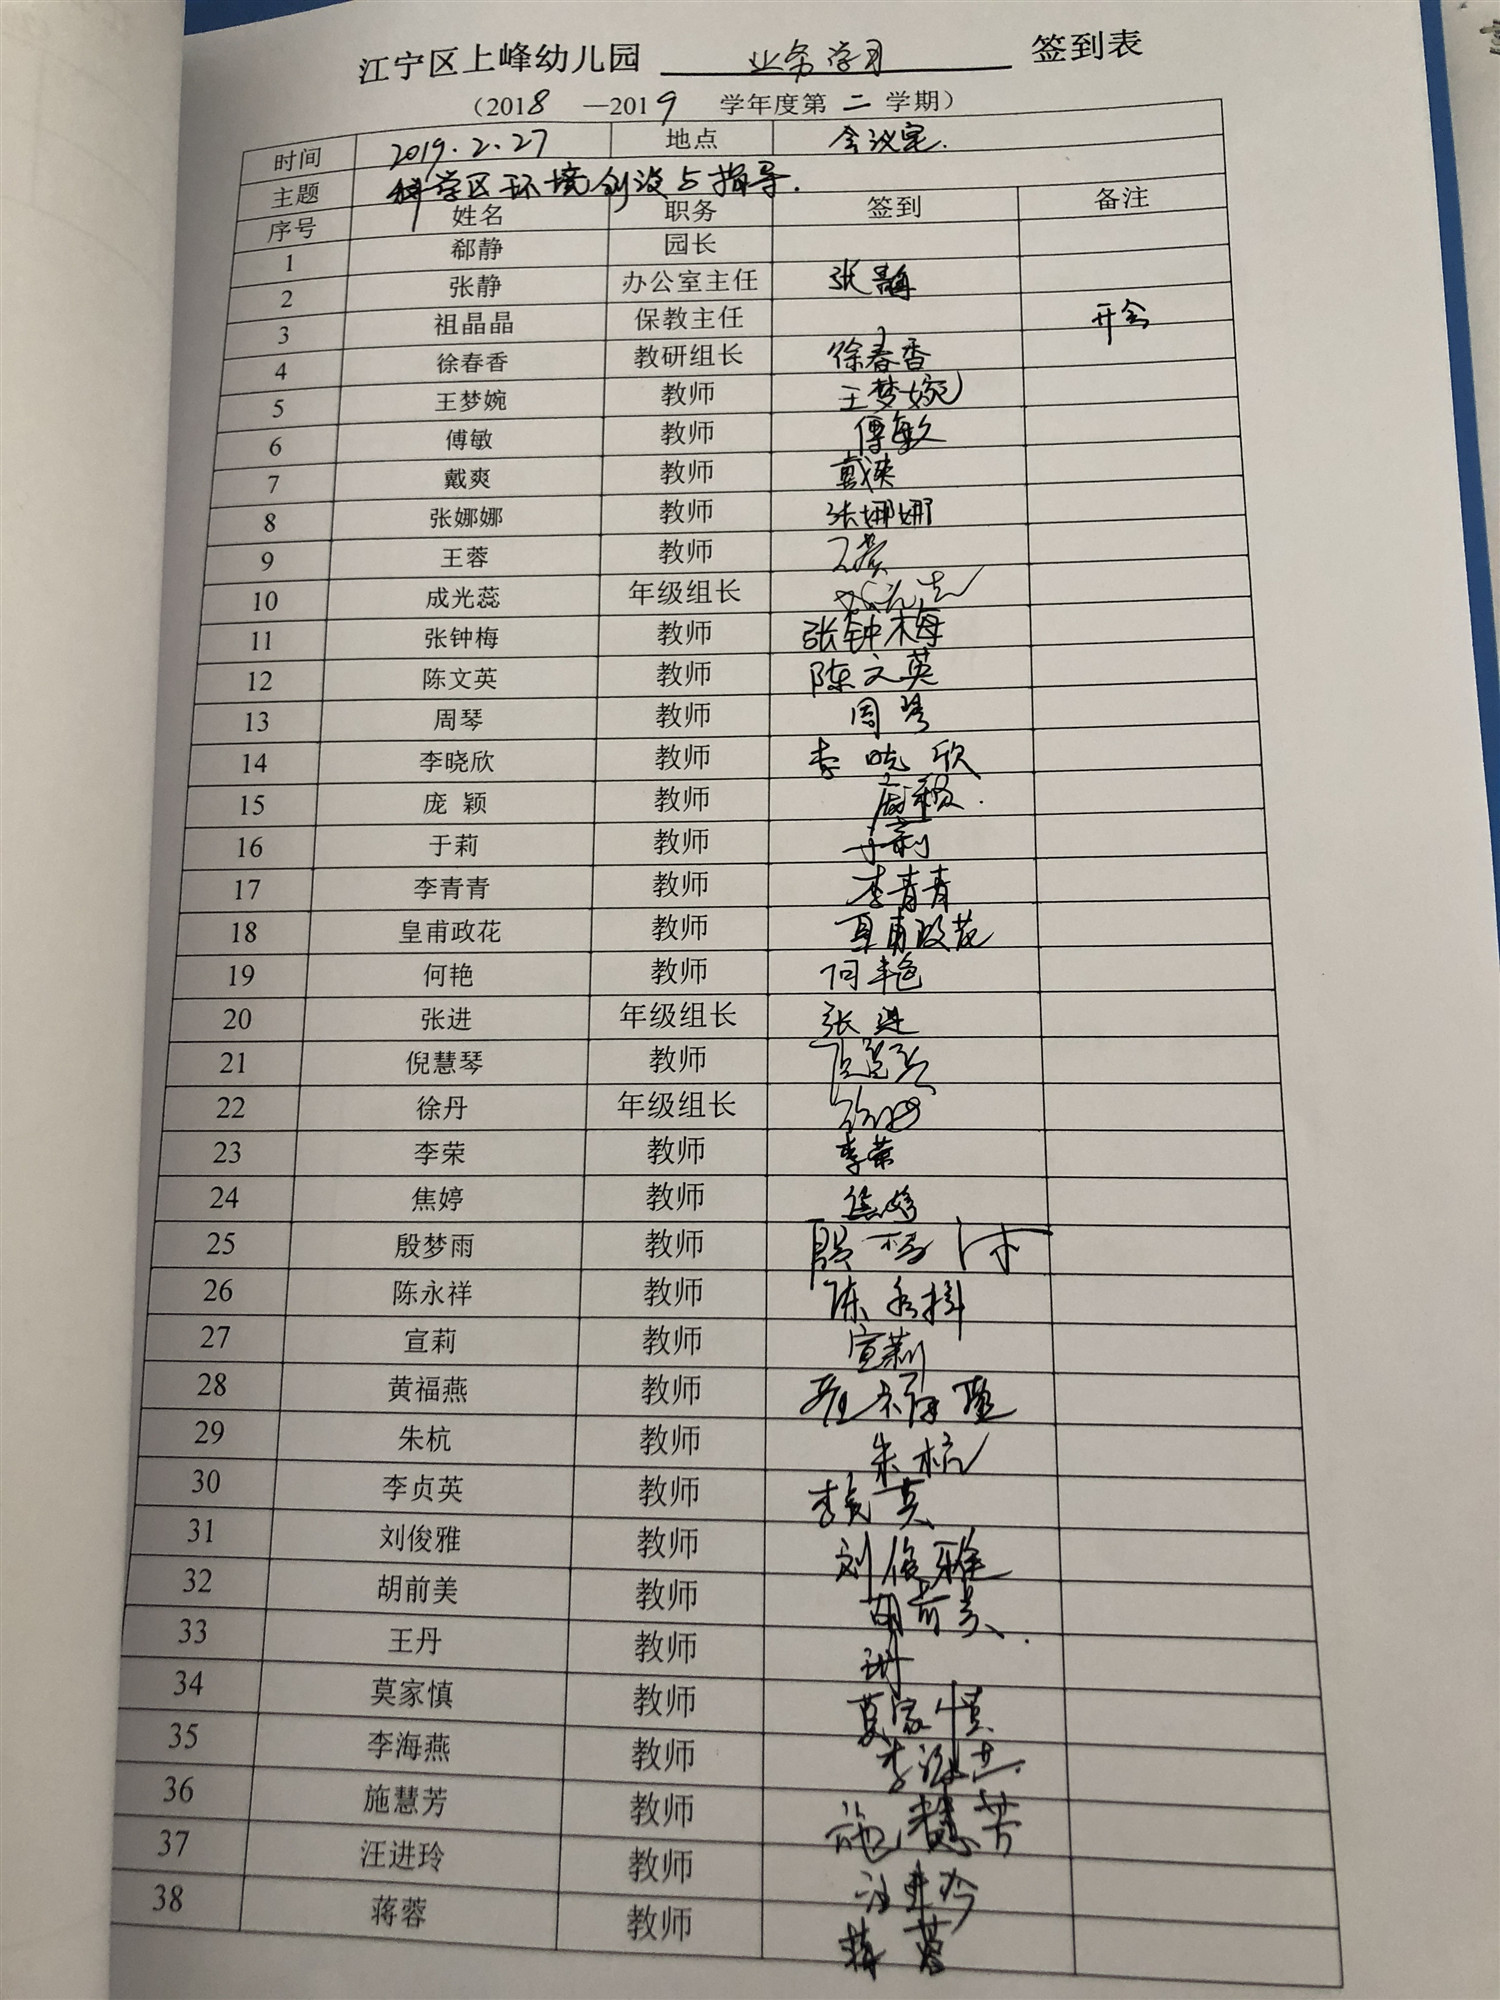 江宁区上峰幼儿园 业务学习 签到表
（2018 —2019 学年度第 二 学期）
时间 2019.2.27 地点 会议室.
主题 科学区环境创设与指导.
序号 姓名 职务 签到 备注
1 郗静 园长
2 张静 办公室主任 张静
3 祖晶晶 保教主任 开会
4 徐春香 教研组长 徐春香
5 王梦婉 教师 王梦婉
6 傅敏 教师 傅敏
7 戴爽 教师 戴爽
8 张娜娜 教师 张娜娜
9 王蓉 教师 王蓉
10 成光蕊 年级组长 成光蕊
11 张钟梅 教师 张钟梅
12 陈文英 教师 陈文英
13 周琴 教师 周琴
14 李晓欣 教师 李晓欣
15 庞 颖 教师 庞颖.
16 于莉 教师 于莉
17 李青青 教师 李青青
18 皇甫政花 教师 皇甫政花
19 何艳 教师 何艳
20 张进 年级组长 张进
21 倪慧琴 教师 倪慧琴
22 徐丹 年级组长 徐丹
23 李荣 教师 李荣
24 焦婷 教师 焦婷
25 殷梦雨 教师 殷梦雨
26 陈永祥 教师 陈永祥
27 宣莉 教师 宣莉
28 黄福燕 教师 黄福燕
29 朱杭 教师 朱杭
30 李贞英 教师 李贞英
31 刘俊雅 教师 刘俊雅
32 胡前美 教师 胡前美.
33 王丹 教师 王丹
34 莫家慎 教师 莫家慎
35 李海燕 教师 李海燕
36 施慧芳 教师 施慧芳
37 汪进玲 教师 汪进玲
38 蒋蓉 教师 蒋蓉